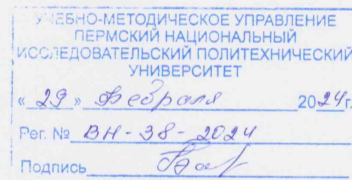 УЧЕБНО-МЕТОДИЧЕСКОЕ УПРАВЛЕНИЕ
ПЕРМСКИЙ НАЦИОНАЛЬНЫЙ
ИССЛЕДОВАТЕЛЬСКИЙ ПОЛИТЕХНИЧЕСКИЙ
УНИВЕРСИТЕТ
«29» февраля 2024г.
Рег. № ВН-38-2024
Подпись